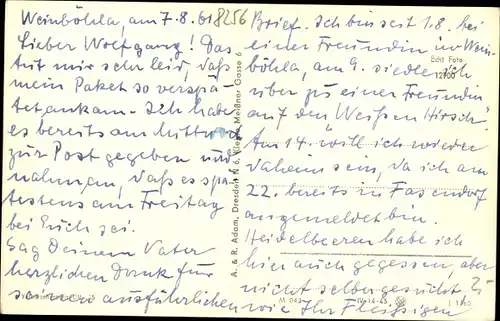 Weinböhla, am 7.8.61
Lieber Wolfgang! Das
tut mir sehr leid, daß
mein Paket so verspä-
tet ankam. Ich habe
es bereits am Mittwoch
zur Post gegeben und
nahm an, daß es spä-
testens am Freitag
bei Euch sei.
Sag Deinem Vater
herzlichen Dank für
seinen ausführlichen
8256
A. & R. Adam, Dresden N 6, Kleine Meißner Gasse 6
Brief. Ich bin seit 1.8. bei
einer Freundin in Wein-
böhla, am 9. siedle ich
rüber zu einer Freundin
auf den Weißen Hirsch.
Am 14. will ich wieder
daheim sein, da ich am
22. bereits in
angemeldet bin.
Heidelbeeren habe ich
hier auch gegessen, aber
nicht selber gesucht
wie Ihr Fleißigen
Echt Foto
12700